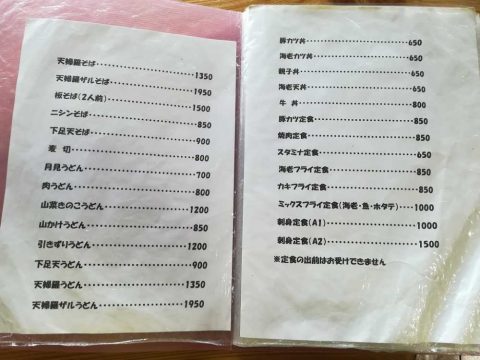 天婦羅そば・・・・・・・・・・・・・・・・・・1350
天婦羅ザルそば・・・・・・・・・・・・・・・1950
板そば(2人前)・・・・・・・・・・・・・・・1500
ニシンそば・・・・・・・・・・・・・・・・・・850
下足天そば・・・・・・・・・・・・・・・・・・900
麦 切・・・・・・・・・・・・・・・・・・・・・800
月見うどん・・・・・・・・・・・・・・・・・・700
肉うどん・・・・・・・・・・・・・・・・・・・・800
山菜きのこうどん・・・・・・・・・・・・・1200
山かけうどん・・・・・・・・・・・・・・・・850
引きずりうどん・・・・・・・・・・・・・・・1200
下足天うどん・・・・・・・・・・・・・・・・900
天婦羅うどん・・・・・・・・・・・・・・・・1350
天婦羅ザルうどん・・・・・・・・・・・・・1950
豚カツ丼・・・・・・・・・・・・・・・・・・・・650
海老カツ丼・・・・・・・・・・・・・・・・・・650
親子丼・・・・・・・・・・・・・・・・・・・・・650
海老天丼・・・・・・・・・・・・・・・・・・・・650
牛 丼・・・・・・・・・・・・・・・・・・・・・800
豚カツ定食・・・・・・・・・・・・・・・・・・850
焼肉定食・・・・・・・・・・・・・・・・・・・・850
スタミナ定食・・・・・・・・・・・・・・・・650
海老フライ定食・・・・・・・・・・・・・・・850
カキフライ定食・・・・・・・・・・・・・・・850
ミックスフライ定食(海老・魚・ホタテ)・・・・1000
刺身定食(A1)・・・・・・・・・・・・・・・1000
刺身定食(A2)・・・・・・・・・・・・・・・1500
※定食の出前はお受けできません